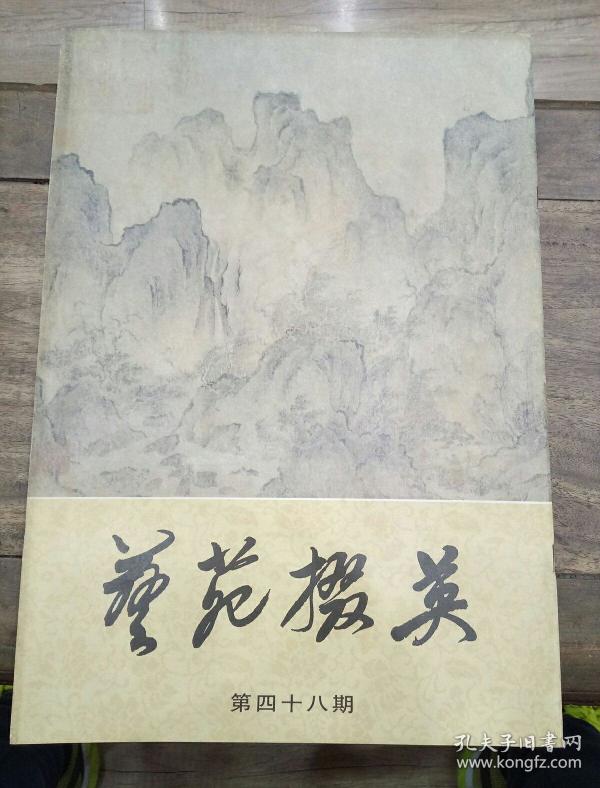 藝苑掇英
第四十八期
孔夫子旧書网
www.kongfz.com